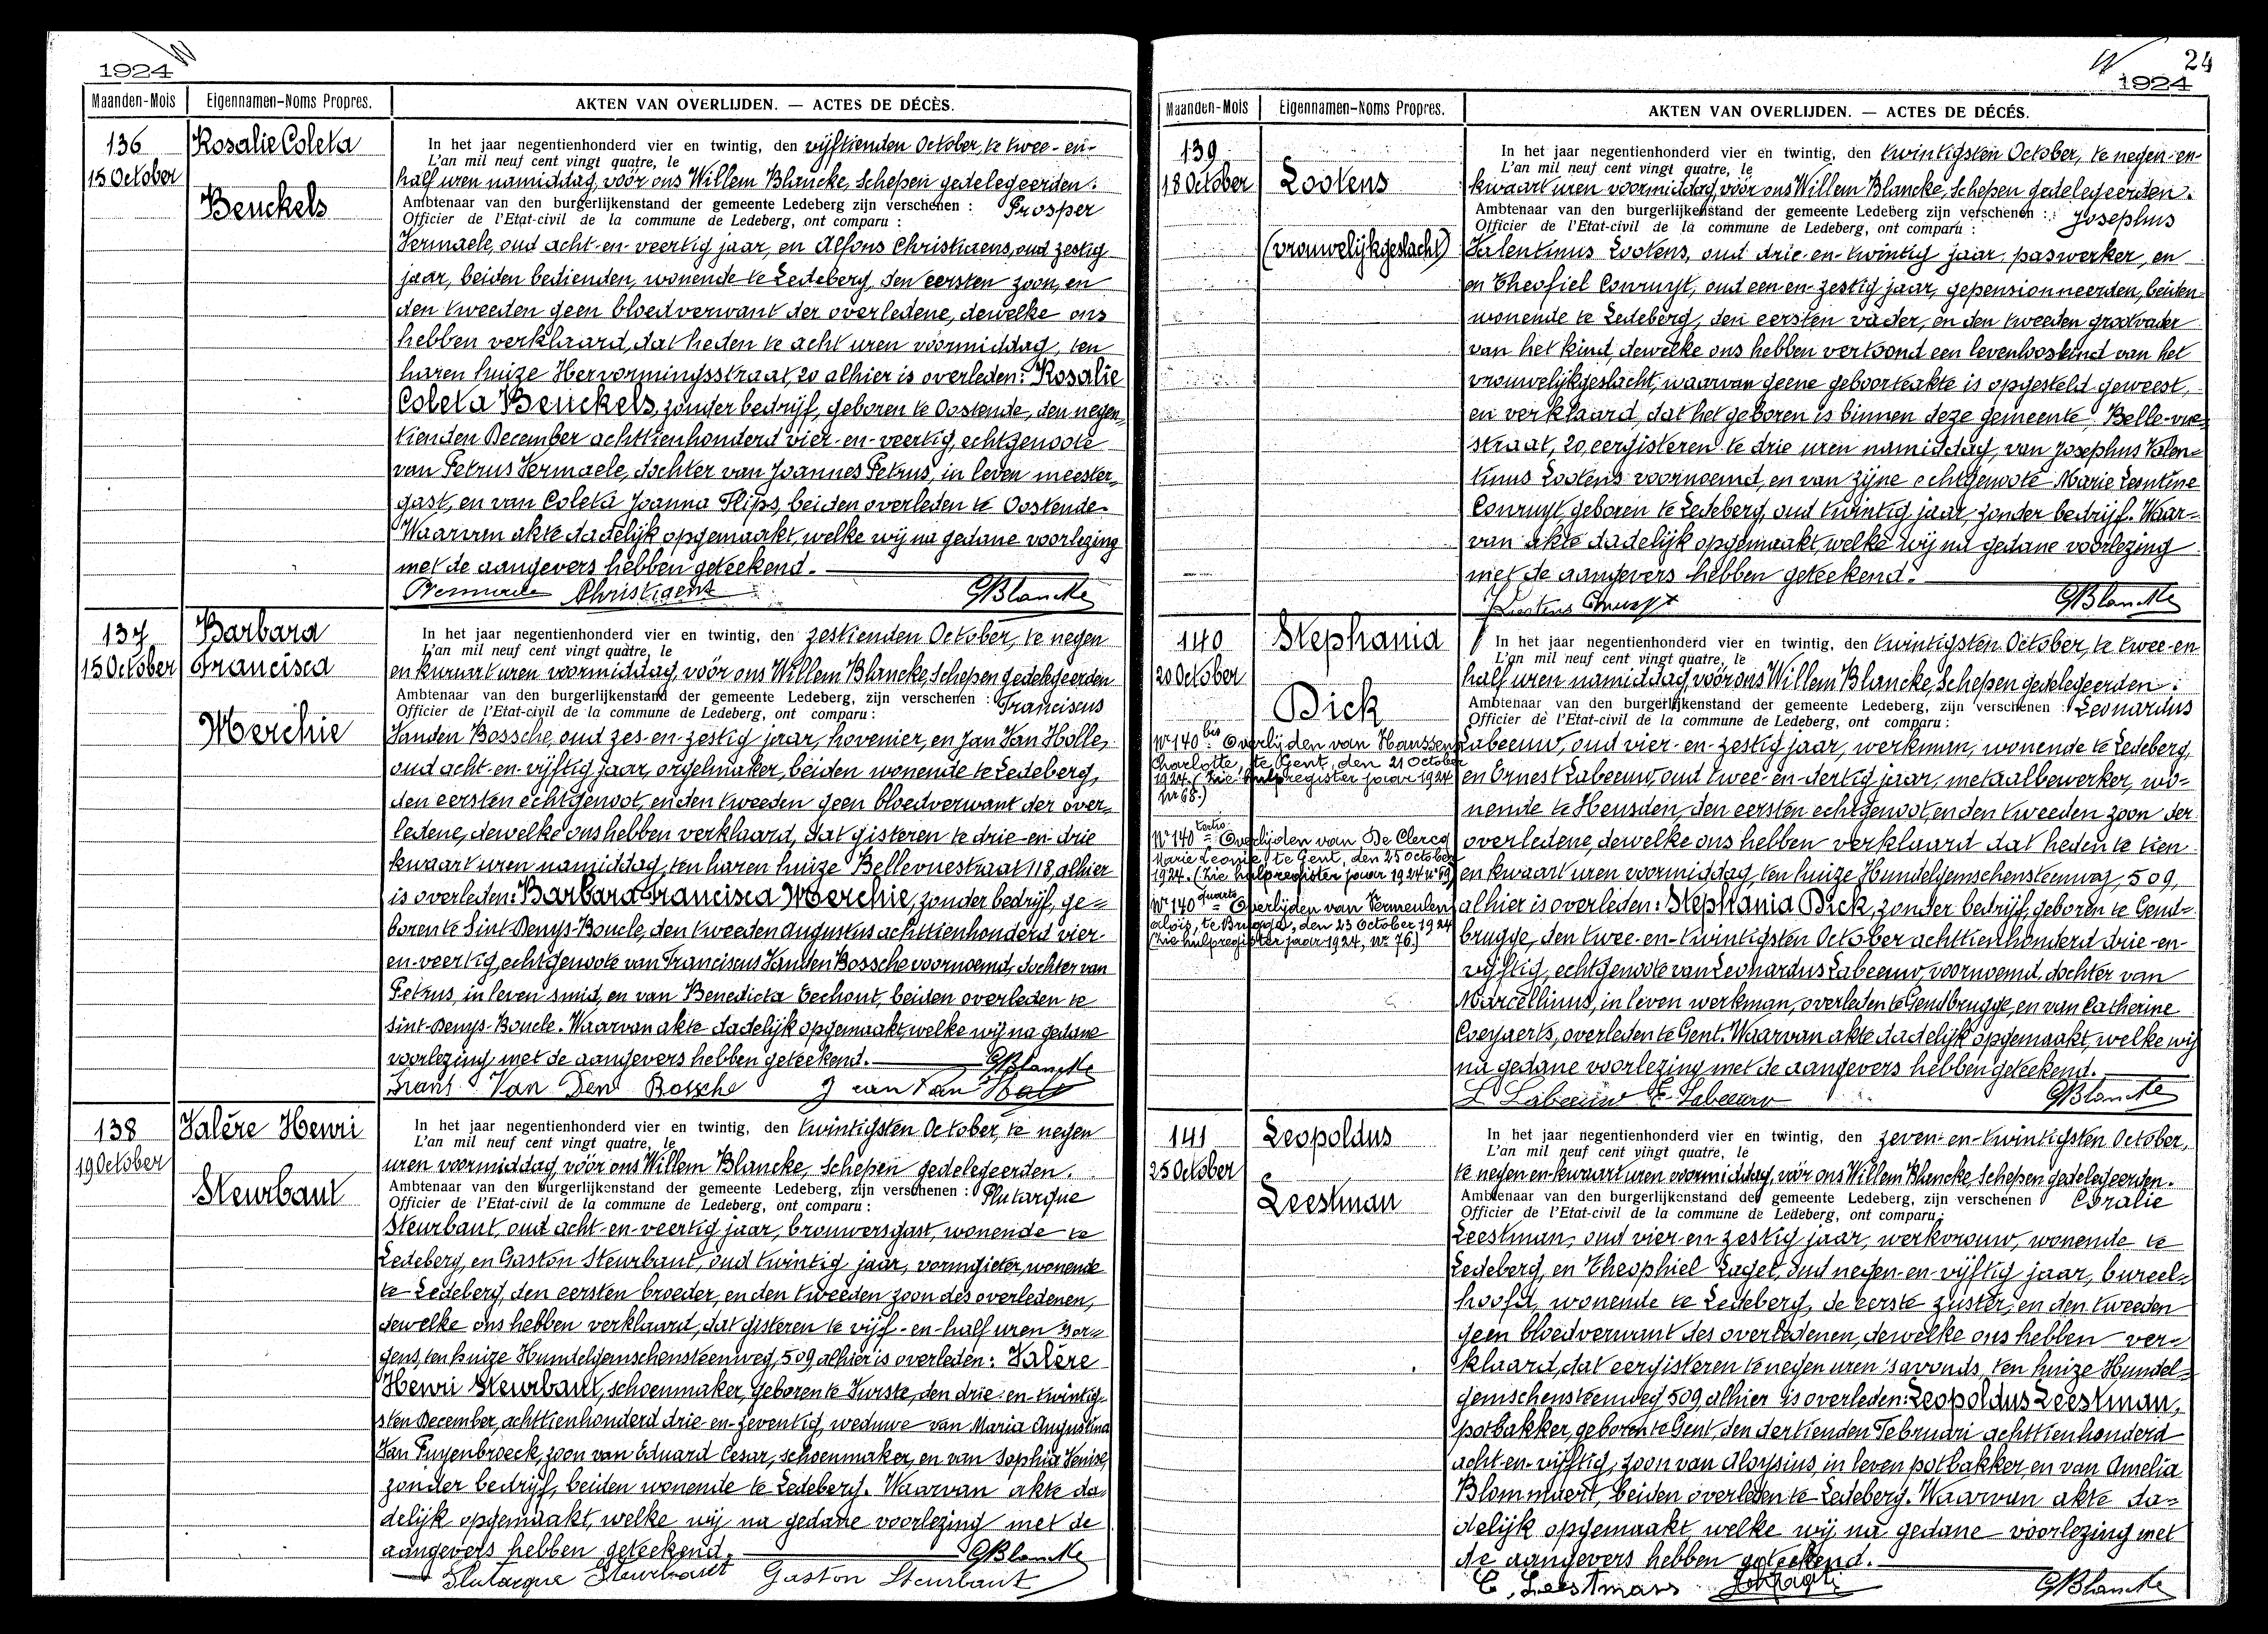 1924
Maanden-Mois
Eigennamen-Noms Propres.
AKTEN VAN OVERLIJDEN. — ACTES DE DÉCÈS.
136
15 October
Rosalie Coleta
Benckels
In het jaar negentienhonderd vier en twintig, den vijftienden October, te twee-en-
L'an mil neuf cent vingt quatre, le
half uren namiddag, vóór ons Willem Blancke, Schepen gedelegeerden.
Ambtenaar van den burgerlijkenstand der gemeente Ledeberg zijn verschenen : Prosper
Officier de l'Etat-civil de la commune de Ledeberg, ont comparu :
Vermaele, oud acht-en-veertig jaar, en Alfons Christiaens, oud zestig
jaar, beiden bedienden, wonende te Ledeberg, den eersten zoon, en
den tweeden geen bloedverwant der overledene, dewelke ons
hebben verklaard, dat heden te acht uren voormiddag, ten
haren huize Hervormingsstraat, 20 alhier is overleden: Rosalie
Coleta Benckels, zonder bedrijf, geboren te Oostende, den negen-
tienden December achttienhonderd vier-en-veertig, echtgenoote
van Petrus Vermaele, dochter van Joannes Petrus, in leven meester-
gast, en van Coleta Joanna Flips, beiden overleden te Oostende.
Waarvan akte dadelijk opgemaakt, welke wij na gedane voorlezing
met de aangevers hebben geteekend.
Vermaele Christiaens GBlancke
137
15 October
Barbara
Francisca
Merchie
In het jaar negentienhonderd vier en twintig, den zestienden October, te negen
L'an mil neuf cent vingt quatre, le
en kwaart uren voormiddag, vóór ons Willem Blancke, Schepen gedelegeerden
Ambtenaar van den burgerlijkenstand der gemeente Ledeberg, zijn verschenen : Franciscus
Officier de l'Etat-civil de la commune de Ledeberg, ont comparu :
Vanden Bossche, oud zes-en-zestig jaar, hovenier, en Jan Van Holle,
oud acht-en-vijftig jaar, orgelmaker, beiden wonende te Ledeberg,
den eersten echtgenoot, en den tweeden geen bloedverwant der over-
ledene, dewelke ons hebben verklaard, dat gisteren te drie-en-drie
kwaart uren namiddag, ten haren huize Bellevuestraat 118, alhier
is overleden: Barbara Francisca Merchie, zonder bedrijf, ge-
boren te Sint Denys-Boucle, den tweeden Augustus achttienhonderd vier-
en-veertig, echtgenoote van Franciscus Vanden Bossche voornoemd, dochter van
Petrus, in leven smid, en van Benedicta Eechout, beiden overleden te
Sint-Denys-Boucle. Waarvan akte dadelijk opgemaakt, welke wij na gedane
voorlezing met de aangevers hebben geteekend. GBlancke
Frans Van Den Bossche
138
19 October
Valère Henri
Steurbaut
In het jaar negentienhonderd vier en twintig, den twintigsten October, te negen
L'an mil neuf cent vingt quatre, le
uren voormiddag, vóór ons Willem Blancke, Schepen gedelegeerden.
Ambtenaar van den burgerlijkenstand der gemeente Ledeberg, zijn verschenen : Plutarque
Officier de l'Etat-civil de la commune de Ledeberg, ont comparu :
Steurbaut, oud acht-en-veertig jaar, brouwersgast, wonende te
Ledeberg, en Gaston Steurbaut, oud twintig jaar, vormgieter, wonende
te Ledeberg, den eersten broeder, en den tweeden zoon des overledenen,
dewelke ons hebben verklaard, dat gisteren te vijf-en-half uren mor-
gens, ten huize Hundelgemschensteenweg, 509 alhier is overleden: Valère
Henri Steurbaut, schoenmaker, geboren te Vurste, den drie-en-twintig-
sten December, achttienhonderd drie-en-zeventig, weduwe van Maria Augustina
Van Puyenbroeck, zoon van Eduard Cesar, schoenmaker, en van Sophia Venise,
zonder bedrijf, beiden wonende te Ledeberg. Waarvan akte da-
delijk opgemaakt, welke wij na gedane voorlezing met de
aangevers hebben geteekend. GBlancke
Plutarque Steurbaut Gaston Steurbaut
24
1924
Maanden-Mois
Eigennamen-Noms Propres.
AKTEN VAN OVERLIJDEN. — ACTES DE DÉCÉS.
139
18 October
Lootens
(vrouwelijkgeslacht)
In het jaar negentienhonderd vier en twintig, den twintigsten October, te negen-en-
L'an mil neuf cent vingt quatre, le
kwaart uren voormiddag, vóór ons Willem Blancke, Schepen gedelegeerden.
Ambtenaar van den burgerlijkenstand der gemeente Ledeberg zijn verschenen : Josephus
Officier de l'Etat-civil de la commune de Ledeberg, ont comparu :
Valentinus Lootens, oud drie-en-twintig jaar, paswerker, en
en Theofiel Conruyt, oud een-en-zestig jaar, gepensionneerden, beiden
wonende te Ledeberg, den eersten vader, en den tweeden grootvader
van het kind, dewelke ons hebben vertoond een levenlooskind van het
vrouwelijkgeslacht, waarvan geene geboorteakte is opgesteld geweest,
en verklaard, dat het geboren is binnen deze gemeente, Belle-vue-
straat, 20, eergisteren te drie uren namiddag, van Josephus Valen-
tinus Lootens voornoemd, en van zijne echtgenoote Marie Leontine
Conruyt geboren te Ledeberg, oud twintig jaar, zonder bedrijf. Waar-
van akte dadelijk opgemaakt, welke wij na gedane voorlezing
met de aangevers hebben geteekend.
Lootens Conruyt GBlancke
140
20 October
Stephania
Dick
Nr 140 bis Overlijden van Hanssens
Charlotte, te Gent, den 21 October
1924. (Zie hulpregister jaar 1924
Nr 68.)
Nr 140 tertio Overlijden van De Clercq
Marie Leonie te Gent, den 25 October
1924. (Zie hulpregister jaar 1924 nr 69)
Nr 140 quarto Overlijden van Vermeulen
Aloïs, te Brugge, den 23 October 1924
(Zie hulpregister jaar 1924, nr 76.)
In het jaar negentienhonderd vier en twintig, den twintigsten October, te twee-en
L'an mil neuf cent vingt quatre, le
half uren namiddag, vóór ons Willem Blancke, Schepen gedelegeerden :
Ambtenaar van den burgerlijkenstand der gemeente Ledeberg, zijn verschenen : Leonardus
Officier de l'Etat-civil de la commune de Ledeberg, ont comparu :
Labeeuw, oud vier-en-zestig jaar, werkman, wonende te Ledeberg,
en Ernest Labeeuw, oud twee-en-dertig jaar, metaalbewerker, wo-
nende te Heusden, den eersten echtgenoot, en den tweeden zoon der
overledene, dewelke ons hebben verklaard dat heden te tien
en kwaart uren voormiddag, ten huize Hundelgemschensteenweg, 509,
alhier is overleden: Stephania Dick, zonder bedrijf, geboren te Gend-
brugge, den twee-en-twintigsten October achttienhonderd drie-en-
vijftig, echtgenoote van Leonardus Labeeuw, voornoemd, dochter van
Marcellinus, in leven werkman, overleden te Gendbrugge, en van Catherine
Coeyaerts, overleden te Gent. Waarvan akte dadelijk opgemaakt, welke wij
na gedane voorlezing met de aangevers hebben geteekend.
L Labeeuw E. Labeeuw GBlancke
141
25 October
Leopoldus
Leestman
In het jaar negentienhonderd vier en twintig, den zeven-en-twintigsten October,
L'an mil neuf cent vingt quatre, le
te negen en-kwaart uren voormiddag, vóór ons Willem Blancke Schepen gedelegeerden.
Ambtenaar van den burgerlijkenstand der gemeente Ledeberg, zijn verschenen Coralie
Officier de l'Etat-civil de la commune de Ledeberg, ont comparu :
Leestman, oud vier-en-zestig jaar, werkvrouw, wonende te
Ledeberg, en Theophiel Lagei, oud negen-en-vijftig jaar, bureel-
hoofd, wonende te Ledeberg, de eerste zuster, en den tweeden
geen bloedverwant des overledenen, dewelke ons hebben ver-
klaard, dat eergisteren te negen uren 's avonds, ten huize Hundel-
gemschensteenweg 509 alhier is overleden: Leopoldus Leestman,
potbakker, geboren te Gent, den dertienden Februari achttienhonderd
acht-en-vijftig, zoon van Aloysius, in leven potbakker, en van Amelia
Blommaert, beiden overleden te Ledeberg. Waarvan akte da-
delijk opgemaakt, welke wij na gedane voorlezing met
de aangevers hebben geteekend.
C. Leestmans GBlancke